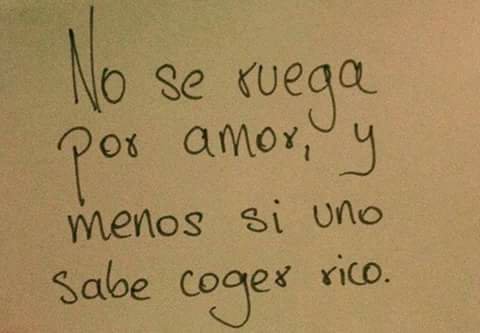 No se ruega
por amor, y
menos si uno
sabe coger rico.